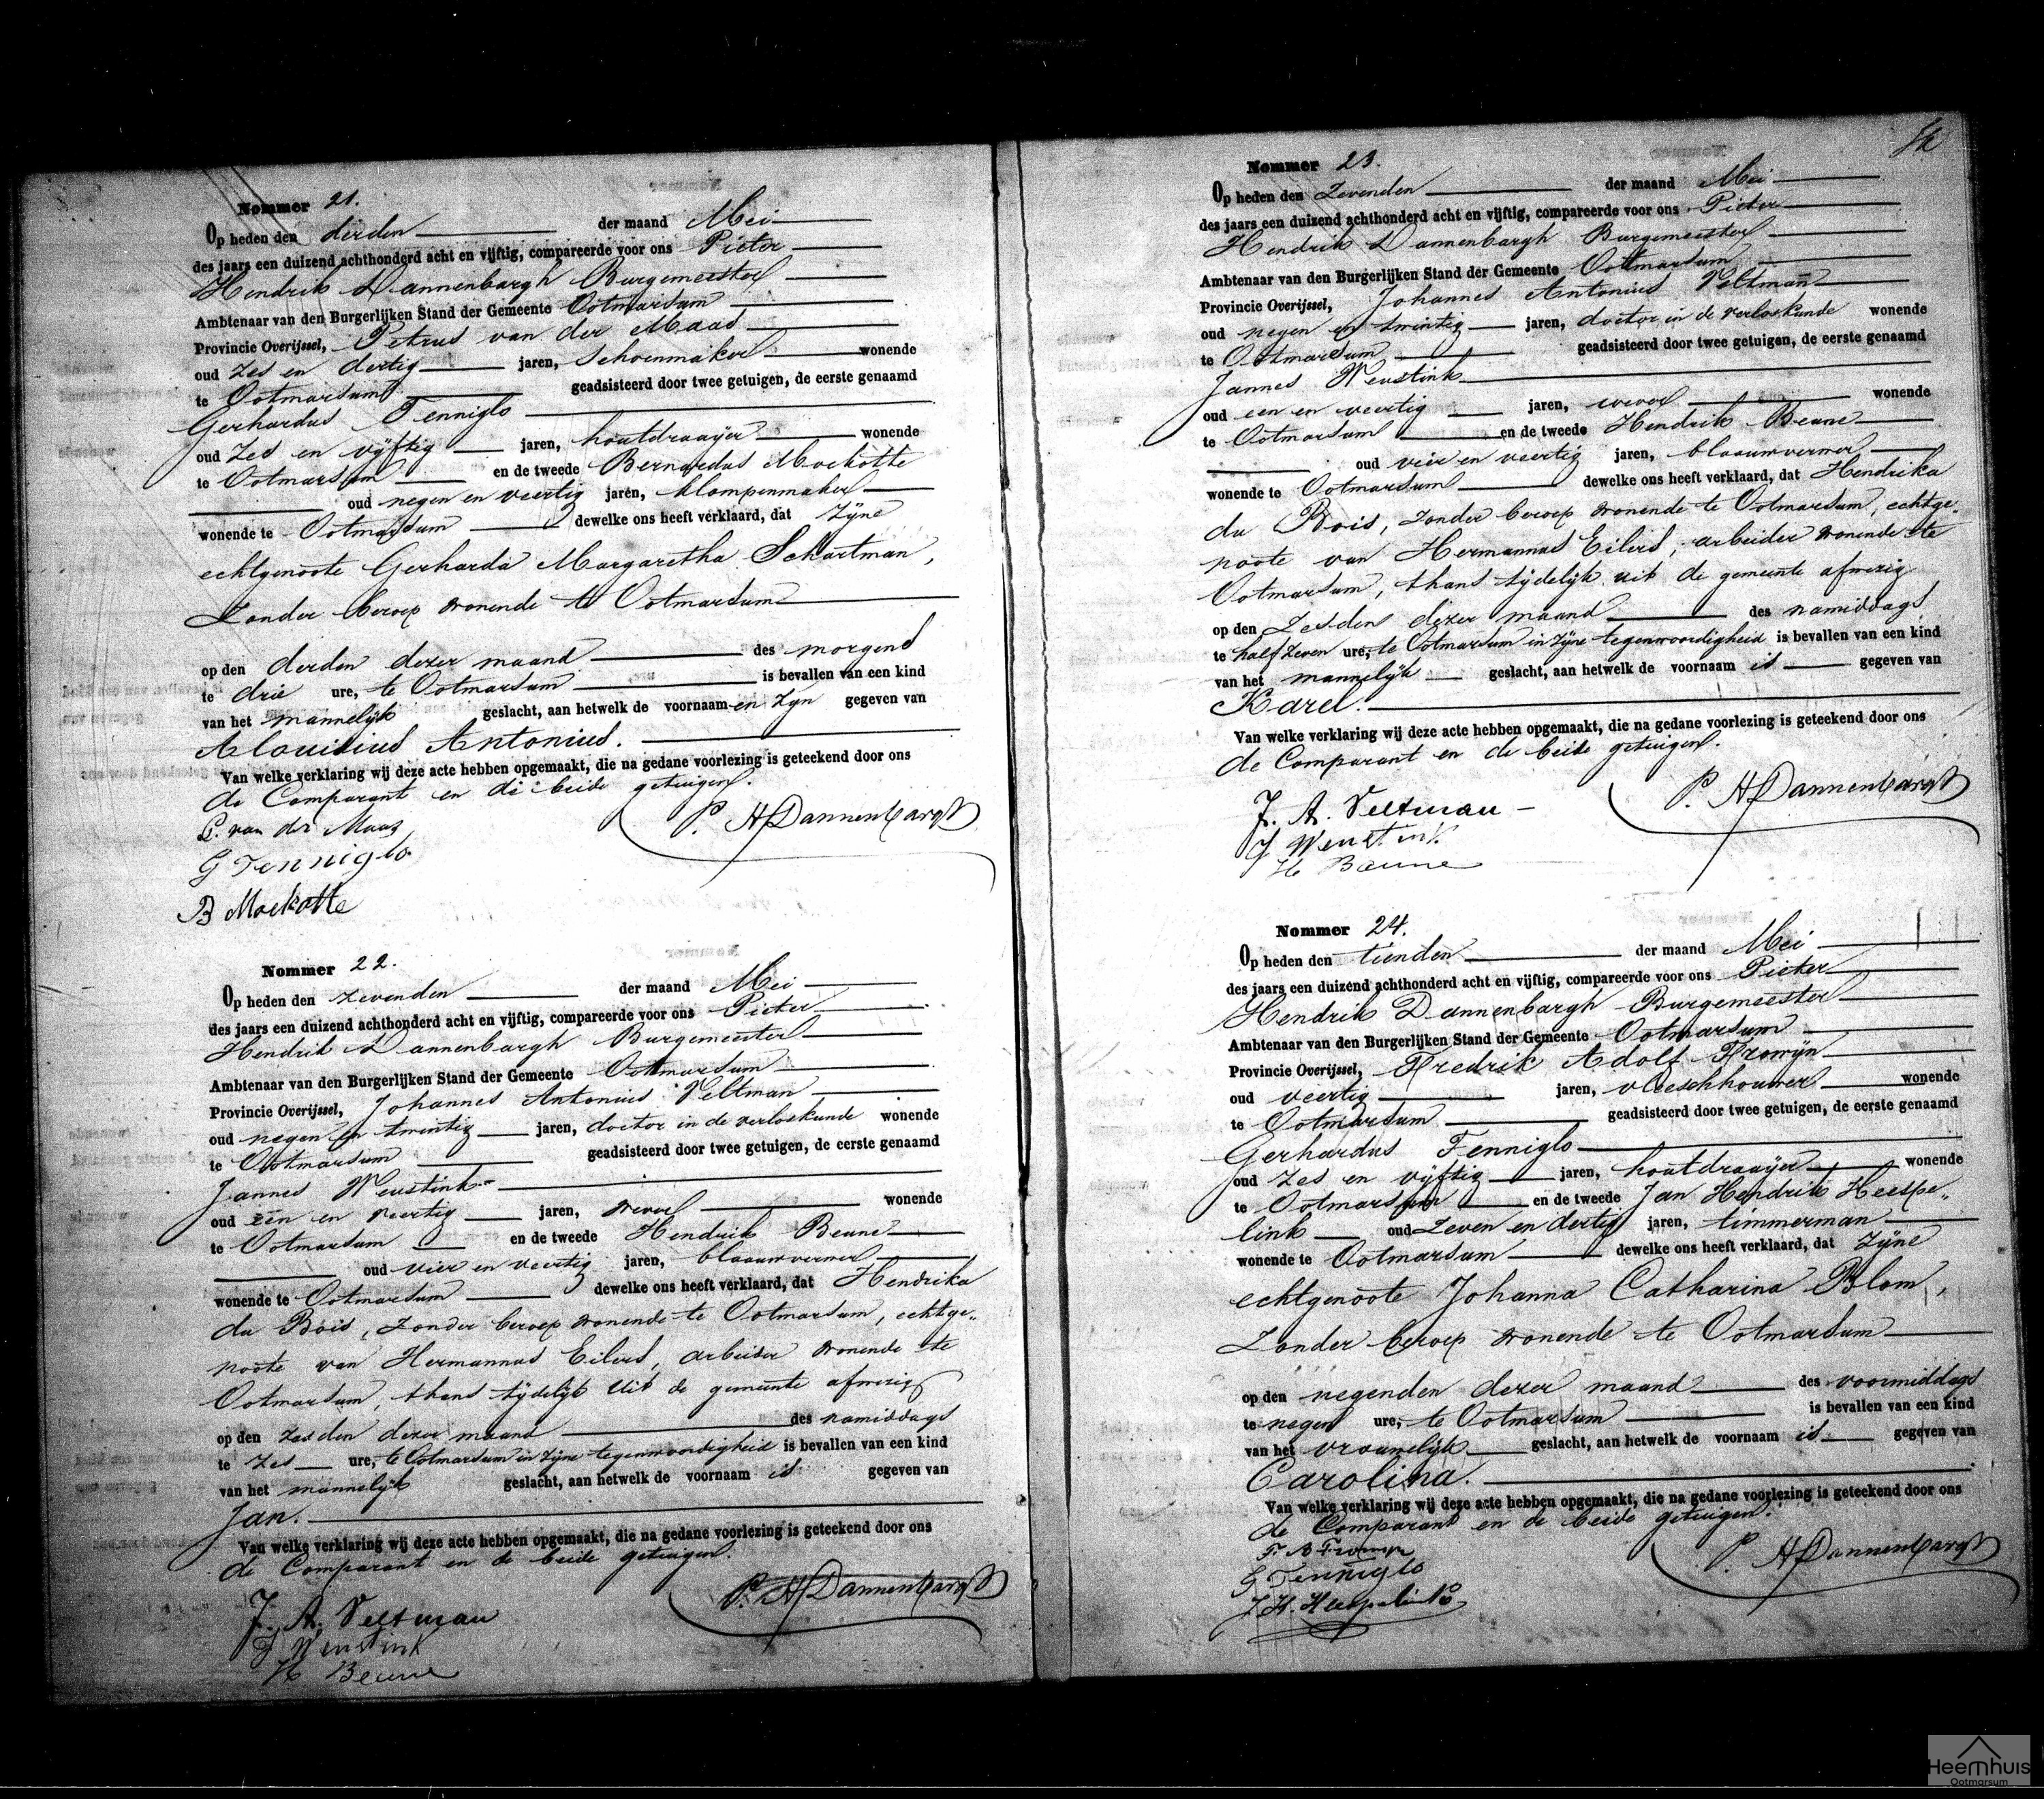 Nommer 21.
Op heden den derden der maand Mei
des jaars een duizend achthonderd acht en vijftig, compareerde voor ons Pieter
Hendrik Dannenbargh Burgemeester
Ambtenaar van den Burgerlijken Stand der Gemeente Ootmarsum
Provincie Overijssel, Petrus van der Maas
oud zes en dertig jaren, schoenmaker wonende
te Ootmarsum geadsisteerd door twee getuigen, de eerste genaamd
Gerhardus Tenniglo
oud zes en vijftig jaren, houtdraaijer wonende
te Ootmarsum en de tweede Bernardus Mockotte
oud negen en veertig jaren, klompenmaker
wonende te Ootmarsum dewelke ons heeft verklaard, dat zijne
echtgenoote Gerharda Margaretha Schartman,
zonder beroep wonende te Ootmarsum
op den derden dezer maand des morgens
te drie ure, te Ootmarsum is bevallen van een kind
van het mannelijk geslacht, aan hetwelk de voornaam en zijn gegeven van
Alouisius Antonius.
Van welke verklaring wij deze acte hebben opgemaakt, die na gedane voorlezing is geteekend door ons
de Comparant en de beide getuigen.
P. van der Maas P. H Dannenbargh
G Tenniglo
B Mockotte
Nommer 22.
Op heden den zevenden der maand Mei
des jaars een duizend achthonderd acht en vijftig, compareerde voor ons Pieter
Hendrik Dannenbargh Burgemeester
Ambtenaar van den Burgerlijken Stand der Gemeente Ootmarsum
Provincie Overijssel, Johannes Antonius Veltman
oud negen en twintig jaren, doctor in de verloskunde wonende
te Ootmarsum geadsisteerd door twee getuigen, de eerste genaamd
Jannes Weustink
oud een en veertig jaren, wever wonende
te Ootmarsum en de tweede Hendrik Beune
oud vier en veertig jaren, blaauwverver
wonende te Ootmarsum dewelke ons heeft verklaard, dat Hendrika
du Bois, zonder beroep wonende te Ootmarsum, echtge-
noote van Hermannus Eilers, arbeider wonende te
Ootmarsum, thans tijdelijk uit de gemeente afwezig
op den zesden dezer maand des namiddags
te zes ure, te Ootmarsum in zijne tegenwoordigheid is bevallen van een kind
van het mannelijk geslacht, aan hetwelk de voornaam is gegeven van
Jan.
Van welke verklaring wij deze acte hebben opgemaakt, die na gedane voorlezing is geteekend door ons
de Comparant en de beide getuigen.
J. A. Veltman P. H Dannenbargh
J Weustink
H Beune
Nommer 23.
Op heden den zevenden der maand Mei
des jaars een duizend achthonderd acht en vijftig, compareerde voor ons Pieter
Hendrik Dannenbargh Burgemeester
Ambtenaar van den Burgerlijken Stand der Gemeente Ootmarsum
Provincie Overijssel, Johannes Antonius Veltman
oud negen en twintig jaren, doctor in de verloskunde wonende
te Ootmarsum geadsisteerd door twee getuigen, de eerste genaamd
Jannes Weustink
oud een en veertig jaren, wever wonende
te Ootmarsum en de tweede Hendrik Beune
oud vier en veertig jaren, blaauwverver
wonende te Ootmarsum dewelke ons heeft verklaard, dat Hendrika
du Bois, zonder beroep wonende te Ootmarsum, echtge-
noote van Hermannus Eilers, arbeider wonende te
Ootmarsum, thans tijdelijk uit de gemeente afwezig
op den zesden dezer maand des namiddags
te half zeven ure, te Ootmarsum in zijne tegenwoordigheid is bevallen van een kind
van het mannelijk geslacht, aan hetwelk de voornaam is gegeven van
Karel.
Van welke verklaring wij deze acte hebben opgemaakt, die na gedane voorlezing is geteekend door ons
de Comparant en de beide getuigen.
J. A. Veltman P. H Dannenbargh
J Weustink.
H Beune
Nommer 24.
Op heden den tienden der maand Mei
des jaars een duizend achthonderd acht en vijftig, compareerde voor ons Pieter
Hendrik Dannenbargh Burgemeester
Ambtenaar van den Burgerlijken Stand der Gemeente Ootmarsum
Provincie Overijssel, Fredrik Adolf Frowijn
oud veertig jaren, vleeschhouwer wonende
te Ootmarsum geadsisteerd door twee getuigen, de eerste genaamd
Gerhardus Tenniglo
oud zes en vijftig jaren, houtdraaijer wonende
te Ootmarsum en de tweede Jan Hendrik Heespe-
link oud zeven en dertig jaren, timmerman
wonende te Ootmarsum dewelke ons heeft verklaard, dat zijne
echtgenoote Johanna Catharina Blom,
zonder beroep wonende te Ootmarsum
op den negenden dezer maand des voormiddags
te negen ure, te Ootmarsum is bevallen van een kind
van het vrouwelijk geslacht, aan hetwelk de voornaam is gegeven van
Carolina.
Van welke verklaring wij deze acte hebben opgemaakt, die na gedane voorlezing is geteekend door ons
de Comparant en de beide getuigen.
F. A Frowijn P. H Dannenbargh
G Tenniglo
J. H. Heespelink
Heemhuis
Ootmarsum